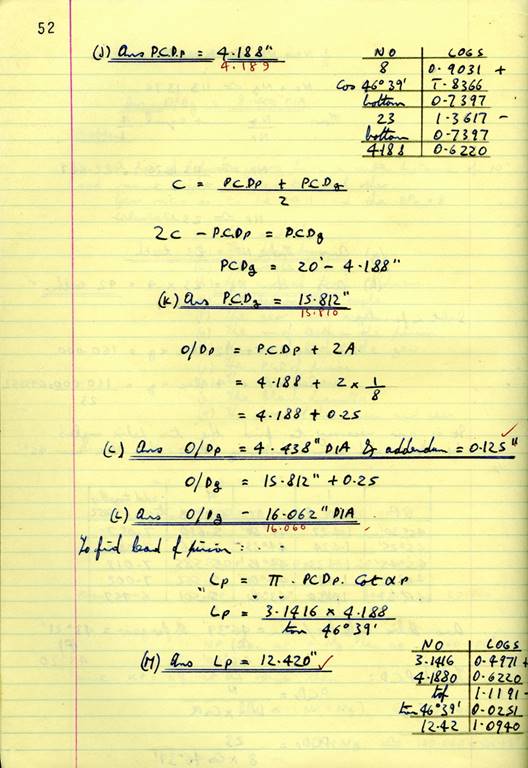 52
(J) Ans P.C.Dp = 4.188"
4.189
NO LOGS
8 0.9031 +
Cos 46°39' 1̄.8366
bottom 0.7397
23 1.3617 -
bottom 0.7397
4.188 0.6220
C = PCDp + PCDg
2
2C - P.C.Dp = P.C.Dg
PCDg = 20' - 4.188"
(K) Ans P.C.Dg = 15.812"
15.810
O/Dp = P.C.Dp + 2A
= 4.188 + 2 x 1/8
= 4.188 + 0.25
(L) Ans O/Dp = 4.438" DIA & addendum = 0.125" ✓
O/Dg = 15.812" + 0.25
(L) Ans O/Dg - 16.062" DIA
16.060
To find lead of pinion : . .
Lp = π . PCDp. Cot αp
Lp = 3.1416 x 4.188
tan 46°39'
(M) Ans Lp = 12.420" ✓
NO LOGS
3.1416 0.4971 +
4.1880 0.6220
top 1.1191 -
tan 46°39' 0.0251
12.42 1.0940